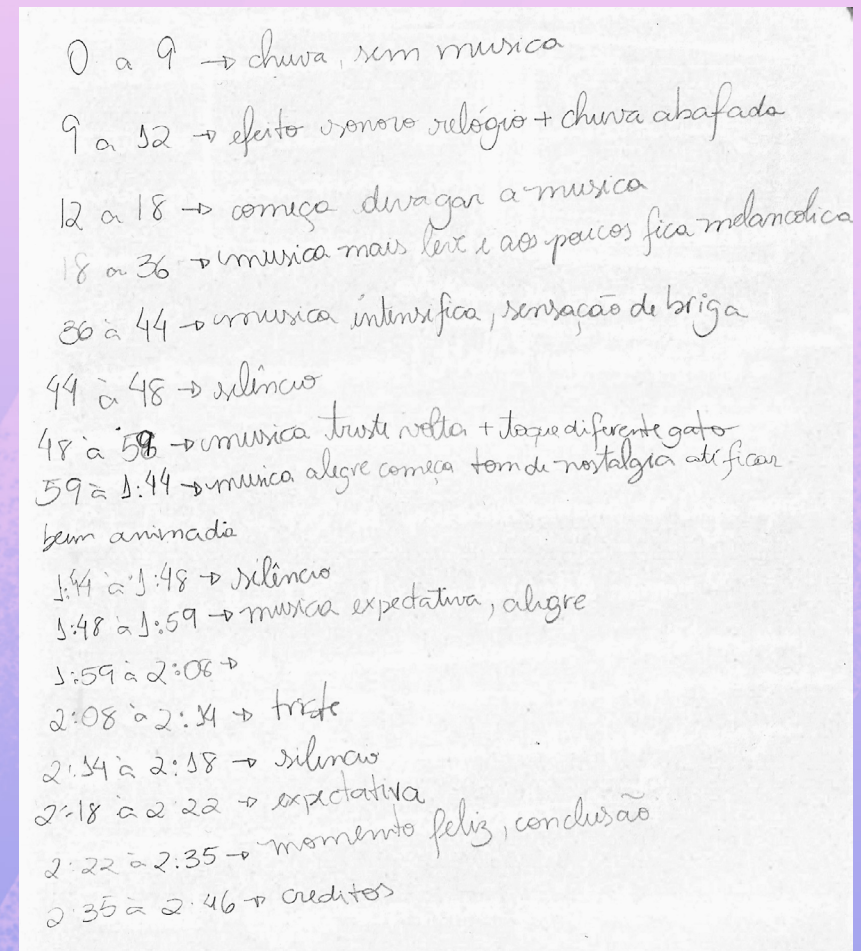 0 a 9 → chuva, sem musica
9 a 12 → efeito sonoro relógio + chuva abafada
12 a 18 → começa devagar a musica
18 a 36 → musica mais leve e aos poucos fica melancolica
36 à 44 → musica intensifica, sensação de briga
44 à 48 → silêncio
48 à 59 → musica triste volta + toque diferente gato
59 à 1:44 → musica alegre começa tom de nostalgia até ficar
bem animada
1:44 à 1:48 → silêncio
1:48 à 1:59 → musica expectativa, alegre
1:59 à 2:08 →
2:08 à 2:14 → triste
2:14 à 2:18 → silencio
2:18 à 2:22 → expectativa
2:22 à 2:35 → momento feliz, conclusão
2:35 à 2:46 → creditos